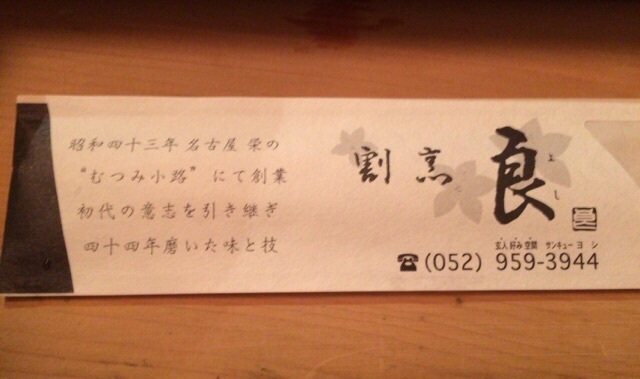 昭和四十三年 名古屋 栄の
“むつみ小路” にて創業
初代の意志を引き継ぎ
四十四年磨いた味と技
割烹 良
よし
玄人好み空間 サンキューヨシ
☎(052) 959-3944